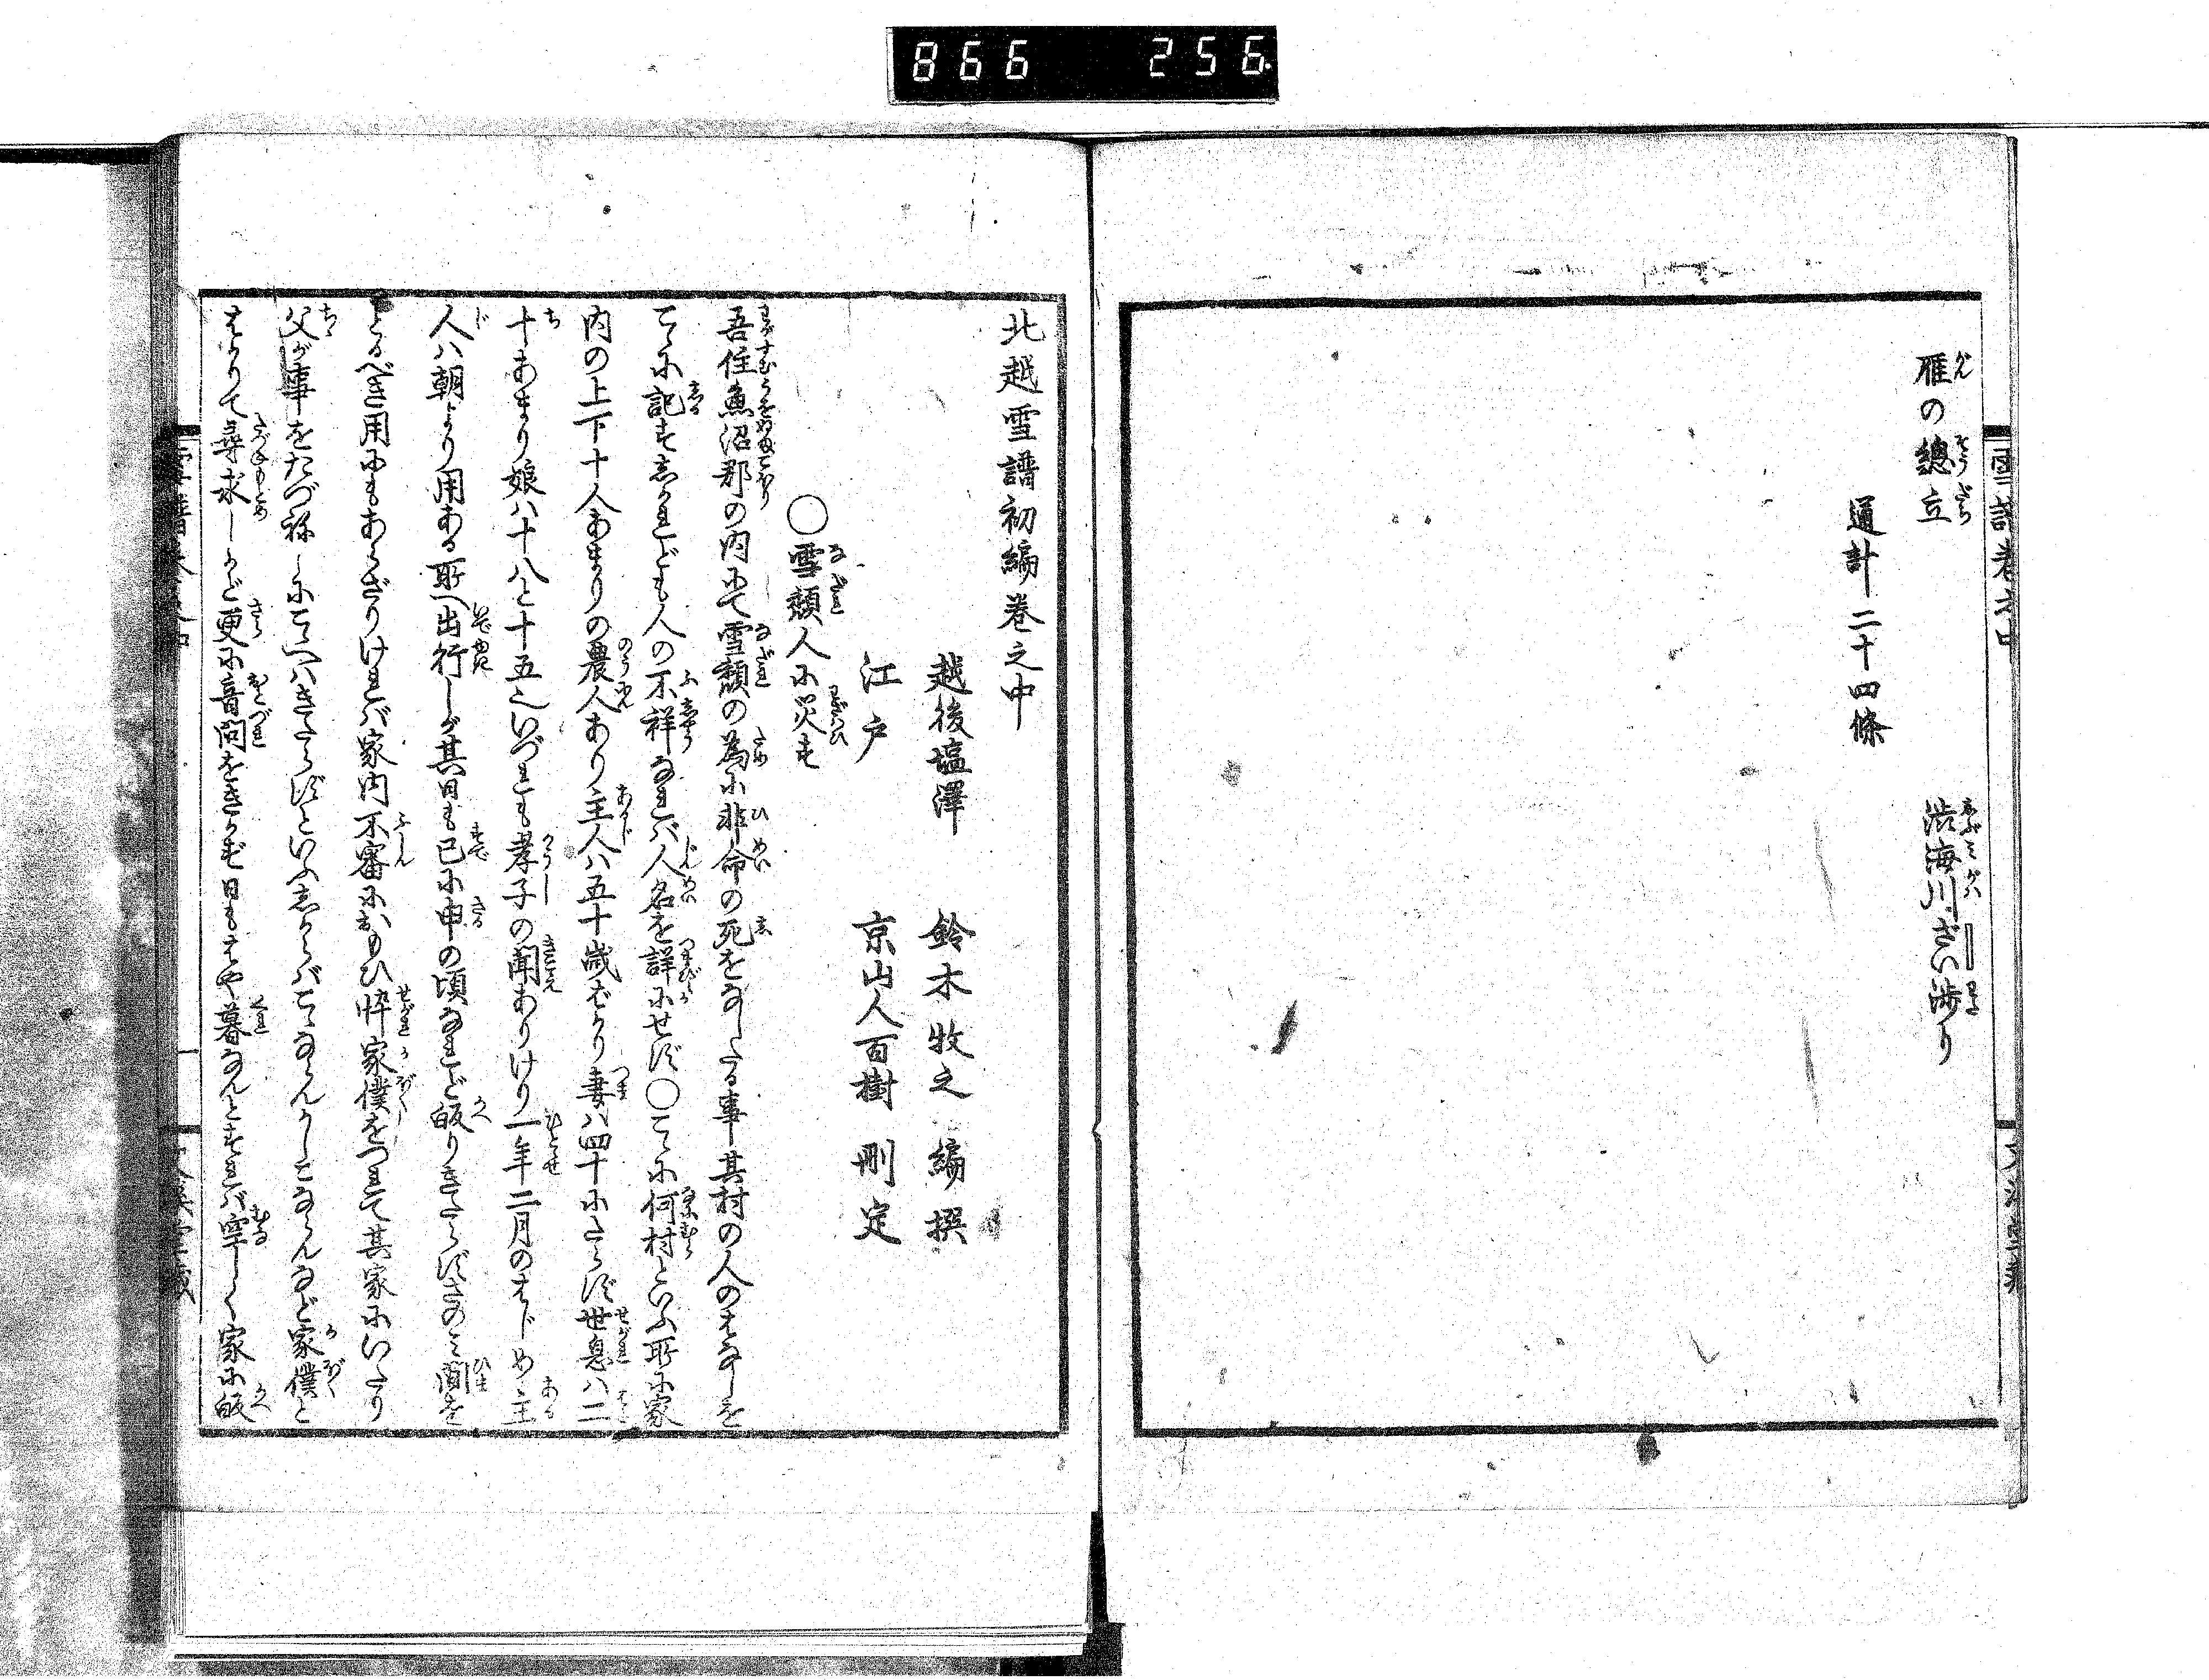 866 256
雁の總立
渋海川ざい渉り
通計二十四條
北越雪譜初編巻之中
越後塩澤 鈴木牧之 編撰
江戸 京山人百樹 刪定
○雪頽人に災す
吾住魚沼郡の内にて雪頽の為に非命の死をなしたる事其村の人のはなしを
こゝに記すしかれども人の不祥なれバ人名を詳にせず○こゝに何村といふ所に家
内の上下十人あまりの農人あり主人ハ五十歳ばかり妻ハ四十にたらず世息ハ二
十あまり娘ハ十八と十五也いづれも孝子の聞ありけり一年二月のはじめ主
人ハ朝より用ある所へ出行しが其日も已に申の頃なれど皈りきたらずさのミ間を
とるべき用にもあらざりけれバ家内不審におもひ忰家僕をつれて其家にいたり
父が事をたづねしにこゝへハきたらずといふしからバこゝならんかしこならんなど家僕と
はかりて尋求しかど更に音問をきかず日もはや暮なんとすれバ空しく家に皈